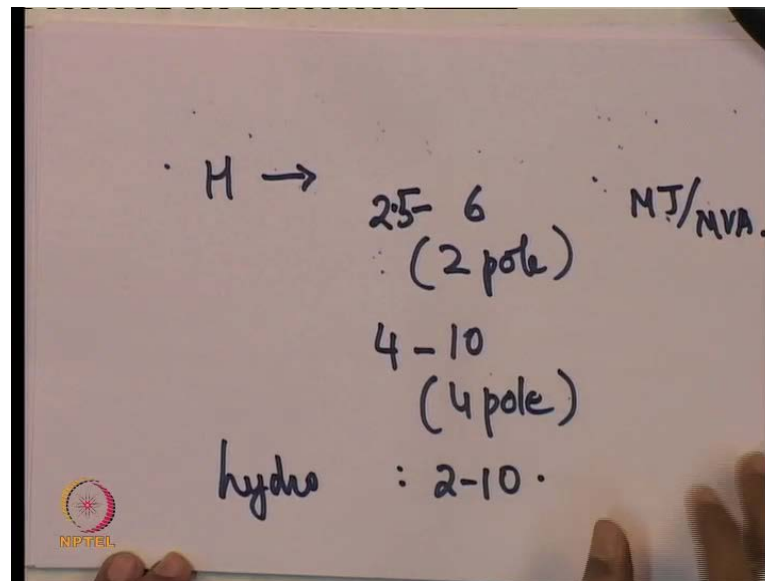 H → 2.5 - 6 MJ/MVA.
(2 pole)
4 - 10
(4 pole)
hydro : 2-10.
NPTEL